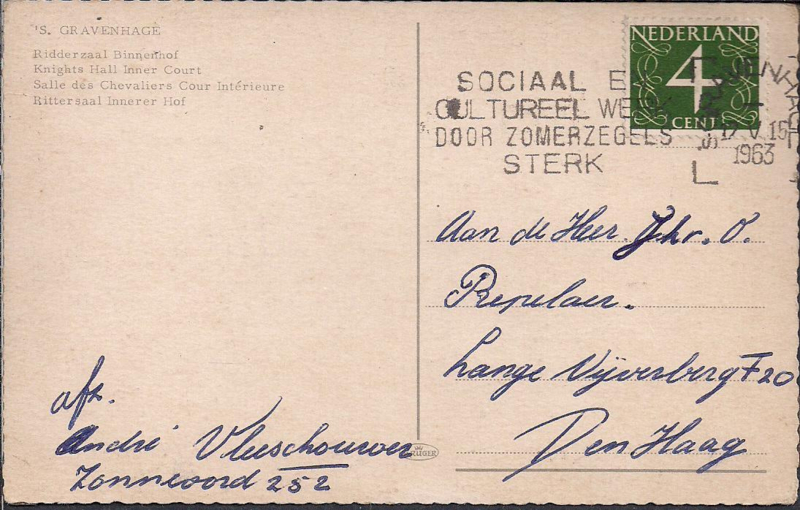 'S. GRAVENHAGE
Ridderzaal Binnenhof
Knights Hall Inner Court
Salle des Chevaliers Cour Intérieure
Rittersaal Innerer Hof
NEDERLAND
4
CENT
SOCIAAL EN
CULTUREEL WERK
DOOR ZOMERZEGELS
STERK
'S-GRAVENHAGE
17 V 15
1963
Aan de Heer Jhr. O.
Repelaer.
Lange Vijverberg F 20
Den Haag
afz.
André Vleeschouwer
Zonneoord 252